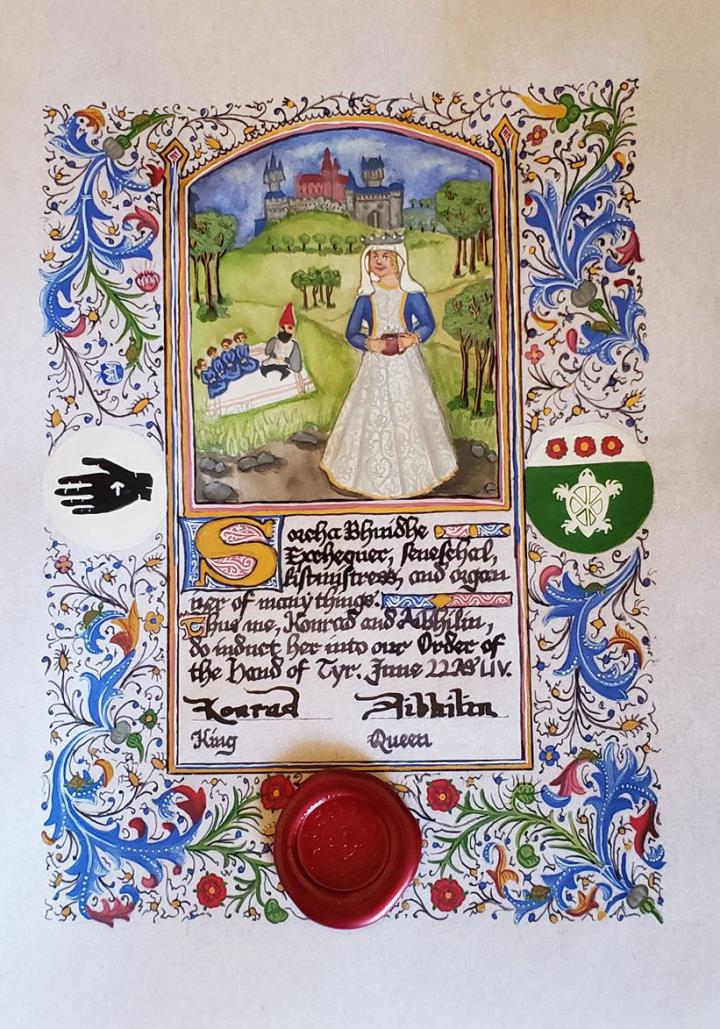 Sorcha Bhuidhe
Exchequer, seneschal,
listministress, and organ
izer of many things.
Thus we, Konrad and Aibhilin,
do induct her into our Order of
the Hand of Tyr. June 22 AS LIV.
Konrad Aibhilin
King Queen